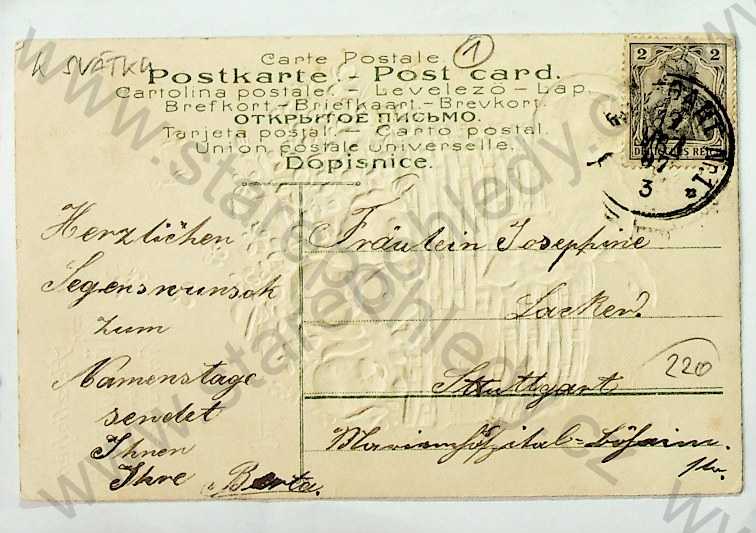 K SVÁTKU
1
Carte Postale.
Postkarte - Post card.
Cartolina postale. - Levelező - Lap.
Brefkort - Briefkaart - Brevkort.
ОТКРЫТОЕ ПИСЬМО.
Tarjeta postal. - Carto postal.
Union postale universelle.
Dopisnice.
2 2
DEUTSCHES REICH
3
Herzlichen
Segenswunsch
zum
Namenstage
sendet
Ihnen
Ihre Berta.
Fräulein Josephine
Stuttgart
220
www.starepohledy.cz